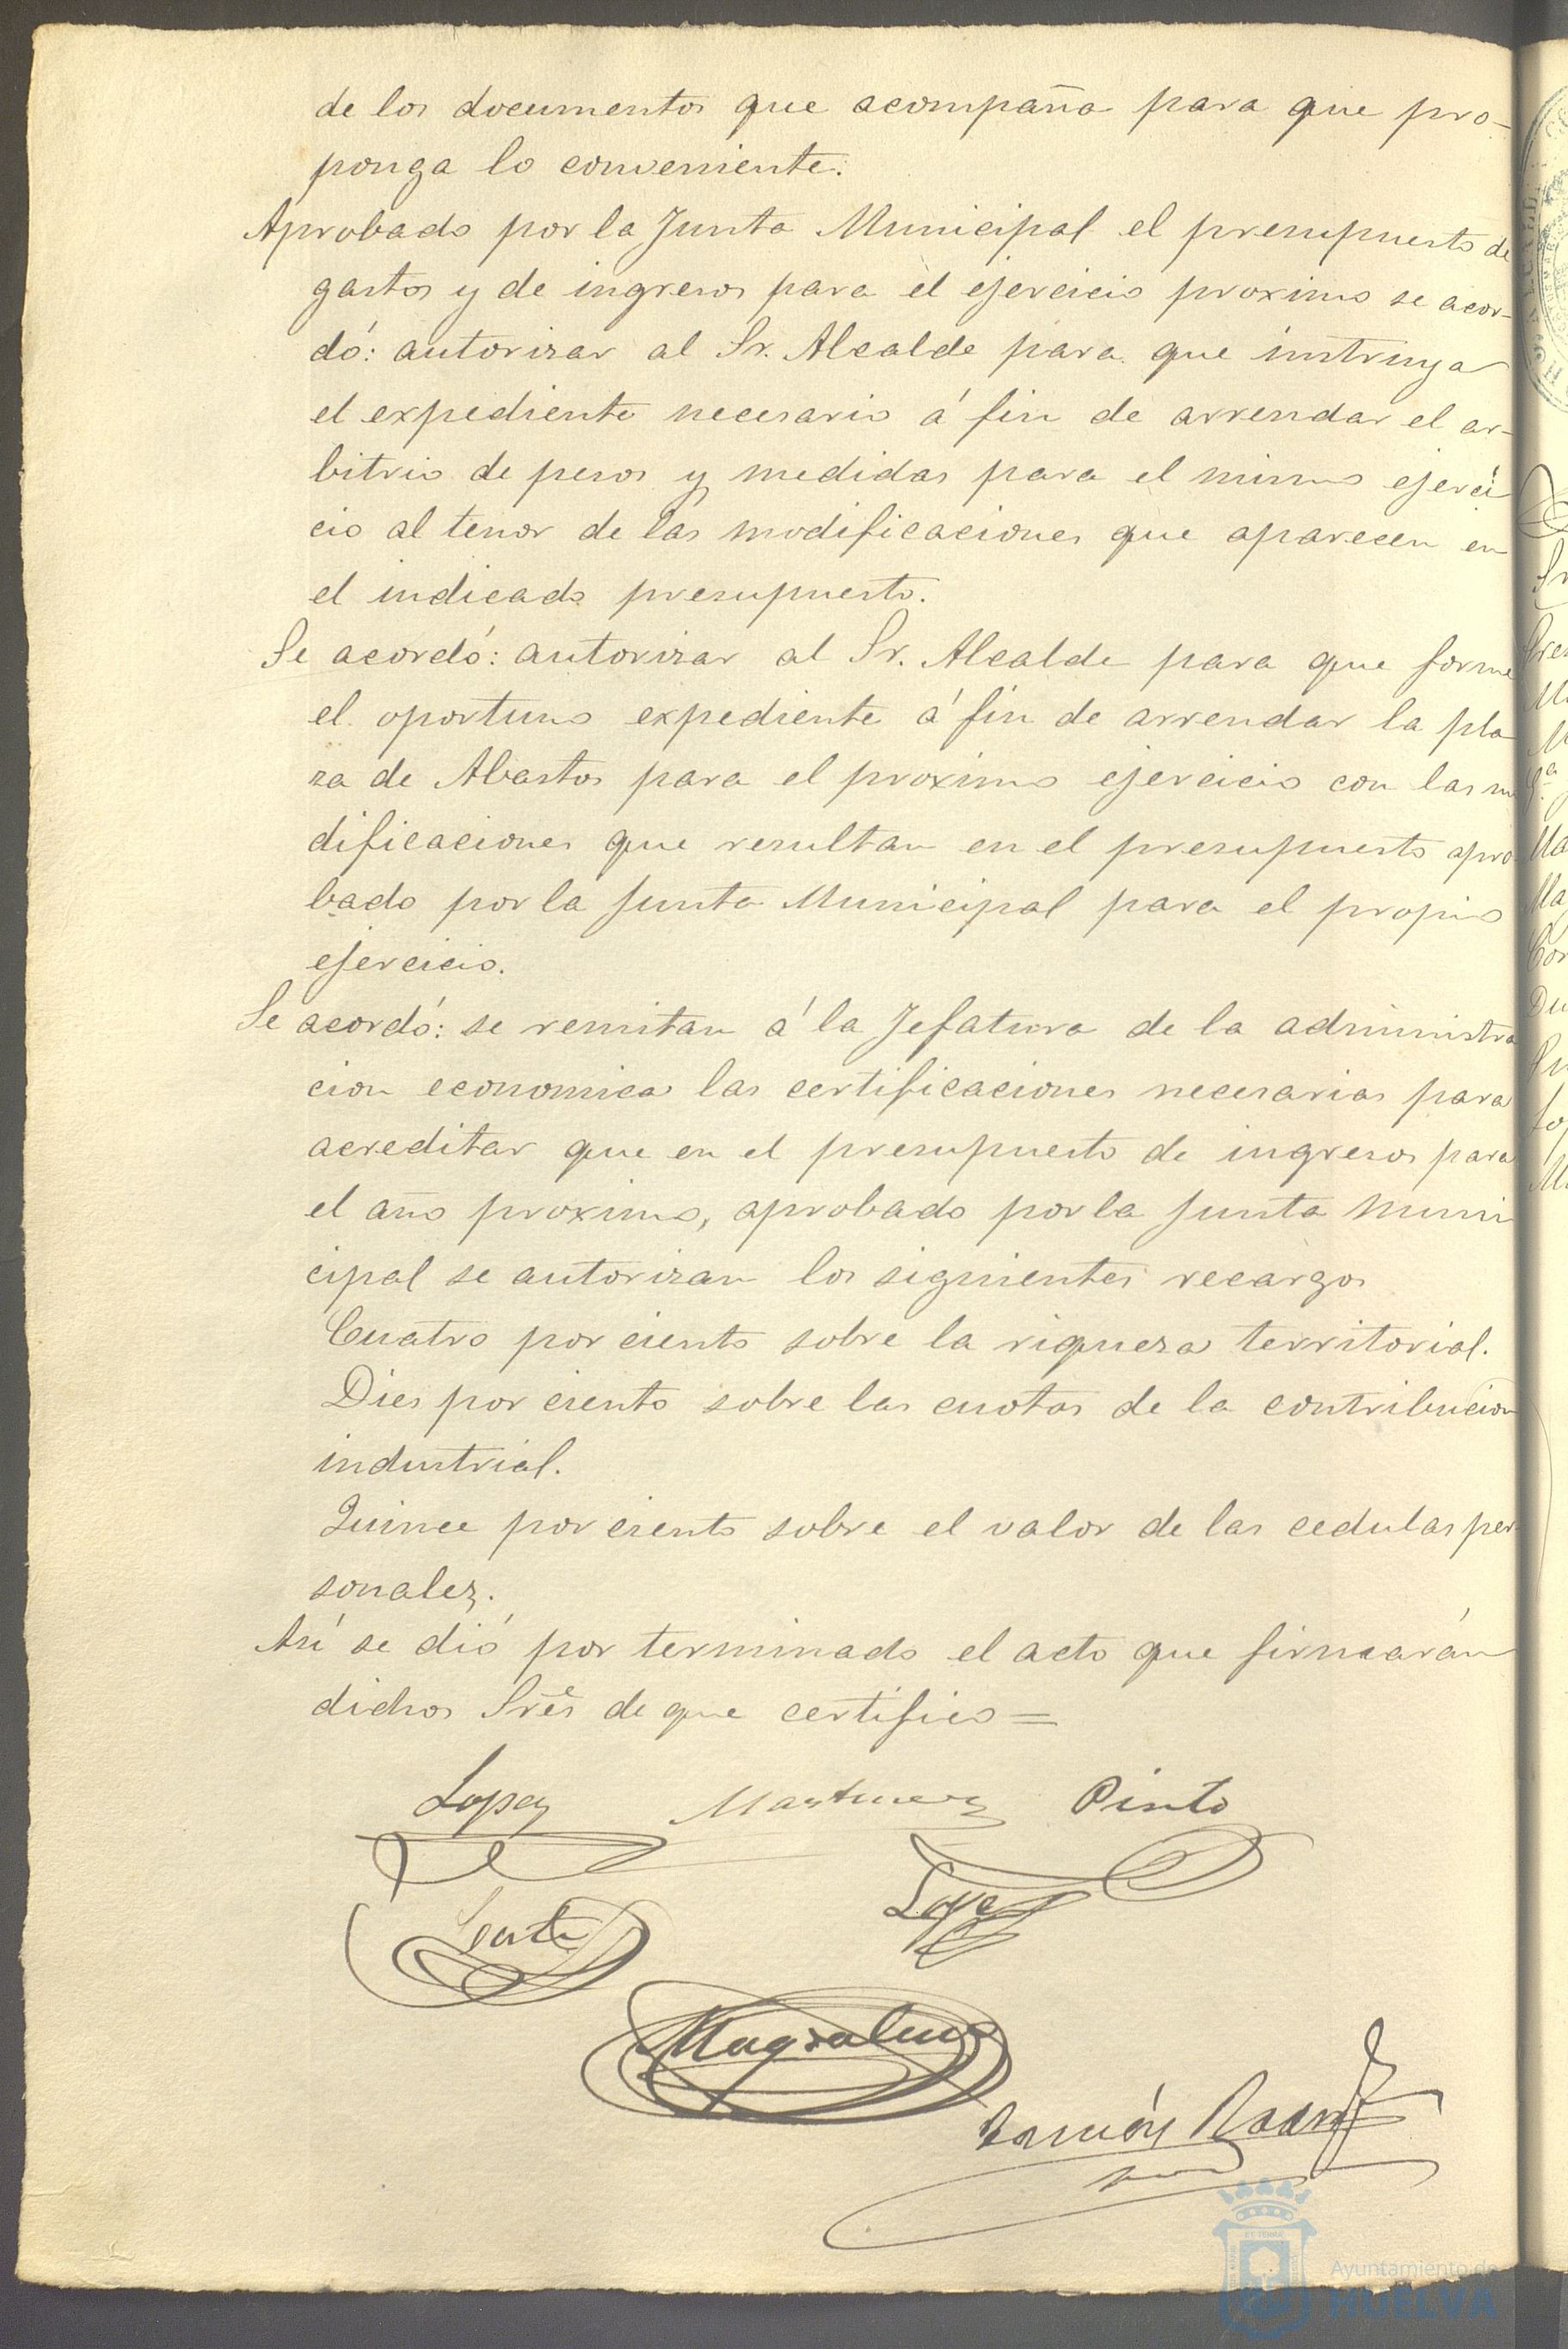 de los documentos que acompaña para que pro-
ponga lo conveniente.
Aprobado por la Junta Municipal el presupuesto de
gastos y de ingresos para el ejercicio proximo se acor-
dó: autorizar al Sr. Alcalde para que instruya
el expediente necesario á fin de arrendar el ar-
bitrio de pesos y medidas para el mismo ejerci
cio al tenor de las modificaciones que aparecen en
el indicado presupuesto.
Se acordó: autorizar al Sr. Alcalde para que forme
el oportuno expediente á fin de arrendar la pla
za de Abastos para el proximo ejercicio con las mo
dificaciones que resultan en el presupuesto apro
bado por la Junta Municipal para el propio
ejercicio.
Se acordó: se remitan á la Jefatura de la administra
cion economica las certificaciones necesarias para
acreditar que en el presupuesto de ingresos para
el año proximo, aprobado por la Junta Muni
cipal se autorizan los siguientes recargos
Cuatro por ciento sobre la riqueza territorial.
Dies por ciento sobre las cuotas de la contribucion
industrial.
Quince por ciento sobre el valor de las cedulas per
sonales.
Así se dió por terminado el acto que firmarán
dichos Sres de que certifico=
Lopez Martinez Pinto
Lopez
Magdaleno
Ramón
Ayuntamiento de
HUELVA